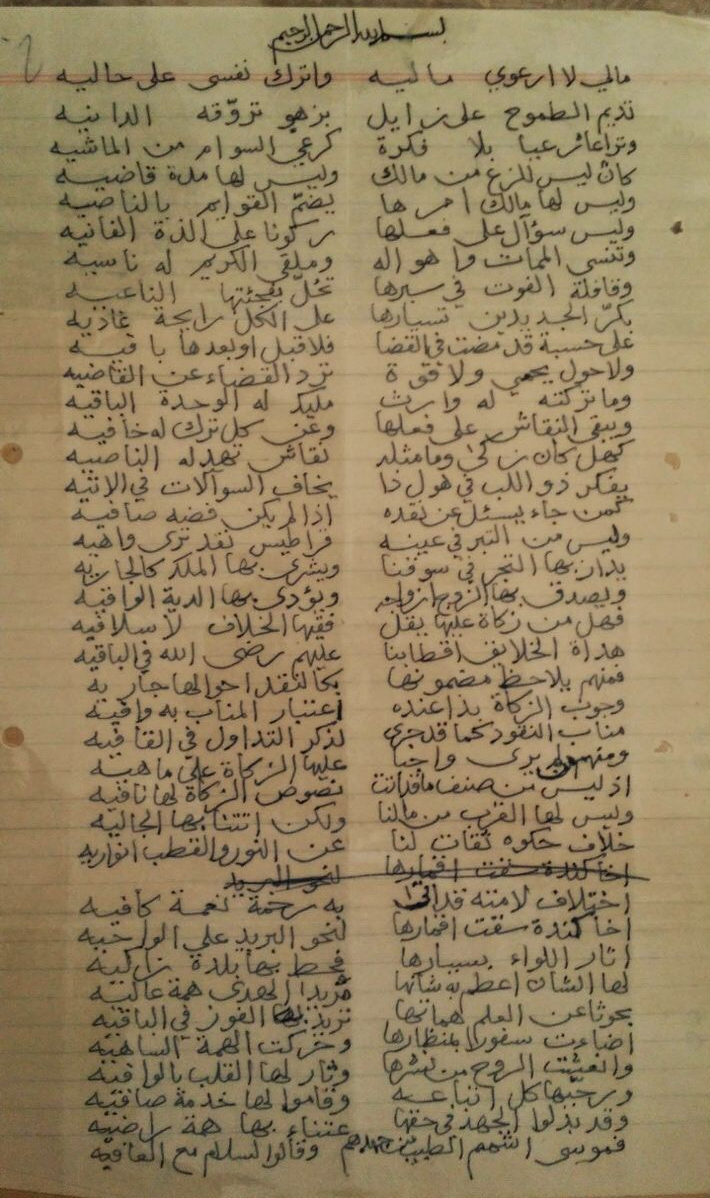 بسم الله الرحمن الرحيم
مالي لا ارعوي ماليه واترك نفسي على حاليه
نديم الطموح على زايل بزهو تروّقه الدانيه
وتراعائر عبا بلا فكرة كرعي السوام من الماشيه
كأن ليس للزع من مالك وليس لها مدة قاضيه
وليس لها مالك امرها يضمّ القوايم بالناصيه
وليس سؤال على فعلها ركونا على الذة الفانيه
وتنسى الممات وما هو اله وملقى الكريم له ناسيه
وقافلة الفوت في سيرها تحلّ بفجئتها الناعيه
بكرّ الجديدين تسيارها على الكل رايحة غاديه
على حسبة قد مضت في القضا فلا قبل اوبعدها باقيه
ولا حول يحمي ولا قوة ترد القضاء عن القاضيه
وما تركته له وارث مليك له الوحدة الباقيه
ويبقى النقاش على فعلها وعن كل ترك له خافيه
كهل كان زكى وما مثله نقاش تهد له الناصيه
يفكر ذو اللب في هول ذا يخاف السوآلات في الاتيه
كمن جاء يسئل عن نقده اذا لم يكن فضه صافيه
وليس من التبر في عينه قراطيس نقد ترى واهيه
يدان بها التجر في سوقنا ويشرى بها الملك كالجاريه
ويصدق بها الزوج ازواجه ويؤدى بها الدية الوافيه
فهل من زكاة عليها يقل فقيها الخلاف لاسلافيه
هداة الخلايف اقطابنا عليهم رضى الله في الباقيه
فمنهم يلاحظ مضمونها بحالنقد احوالها جاريه
وجوب الزكاة بذا عنده اعتبار المناب به وافيه
مناب النقود كما قد جرى لذكر التداول في القافيه
ومنهم ولم يرى واجبا عليها الزكاة على ماهيه
اذ ليس من صنف ما قد اتت نصوص الزكاة لها نافيه
وليس لها القرب من مالنا ولكن اتتنا بها الجاليه
خلاف حكوه ثقات لنا عن النور والقطب انواريه
اخا كندة سقت اقمارها لنحو البريد
اختلاف لامته قد اتى به رحمة نعمة كافيه
اخا كندة سقت اقمارها لنحو البريد على الوارحيه
اثار اللواء بسيارها فحط بها بلدة زاكيه
لها الشان اعظم به شانها مريدا الهدى همة عاليه
بحوثا عن العلم لهما نحها تريد بها الفوز في الباقيه
اضاءت سفورا بمنظارها وحركت الهمة الساهيه
وانعيشت الروح من نشرها وثار لها القلب بالوافيه
ورحّبها كل اتباعه وقاموا لها خدمة صافيه
وقد بذلوا الجهد في حقها عتناء بها همة راضيه
فموسى الشهم الطبيب من جهدهم وقالوا السلام مع العافيه